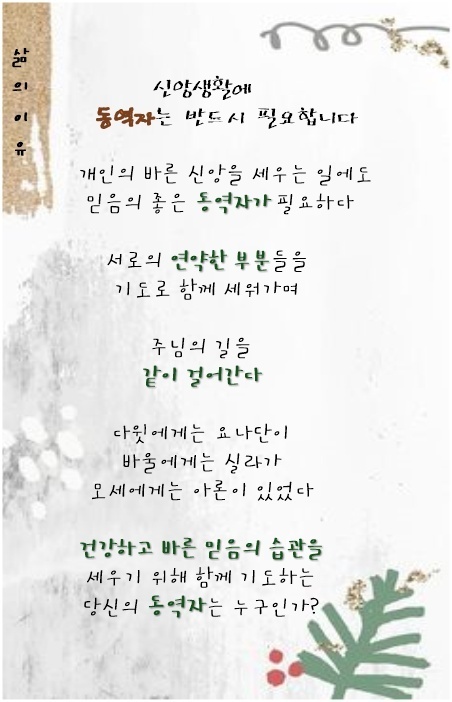 삶의 이유
신앙생활에
동역자는 반드시 필요합니다
개인의 바른 신앙을 세우는 일에도
믿음의 좋은 동역자가 필요하다
서로의 연약한 부분들을
기도로 함께 세워가며
주님의 길을
같이 걸어간다
다윗에게는 요나단이
바울에게는 실라가
모세에게는 아론이 있었다
건강하고 바른 믿음의 습관을
세우기 위해 함께 기도하는
당신의 동역자는 누구인가?